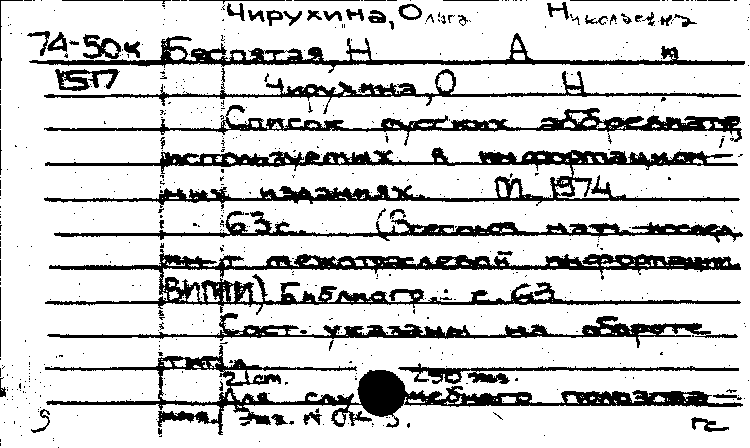 Чирухина, Ольга Николаевна
74-50к Беспятая, Н А и
1517 Чирухина, О Н
Список русских аббревиатур,
используемых в информацион-
ных изданиях. М. 1974.
63 с. (Всесоюз. науч.-исслед.
ин-т межотраслевой информации
ВИМИ) Библиогр.: с. 63
Сост. указаны на обороте
тит. л.
21 cm. 250 экз.
Для служебного пользова-
ния. Экз. N
гс